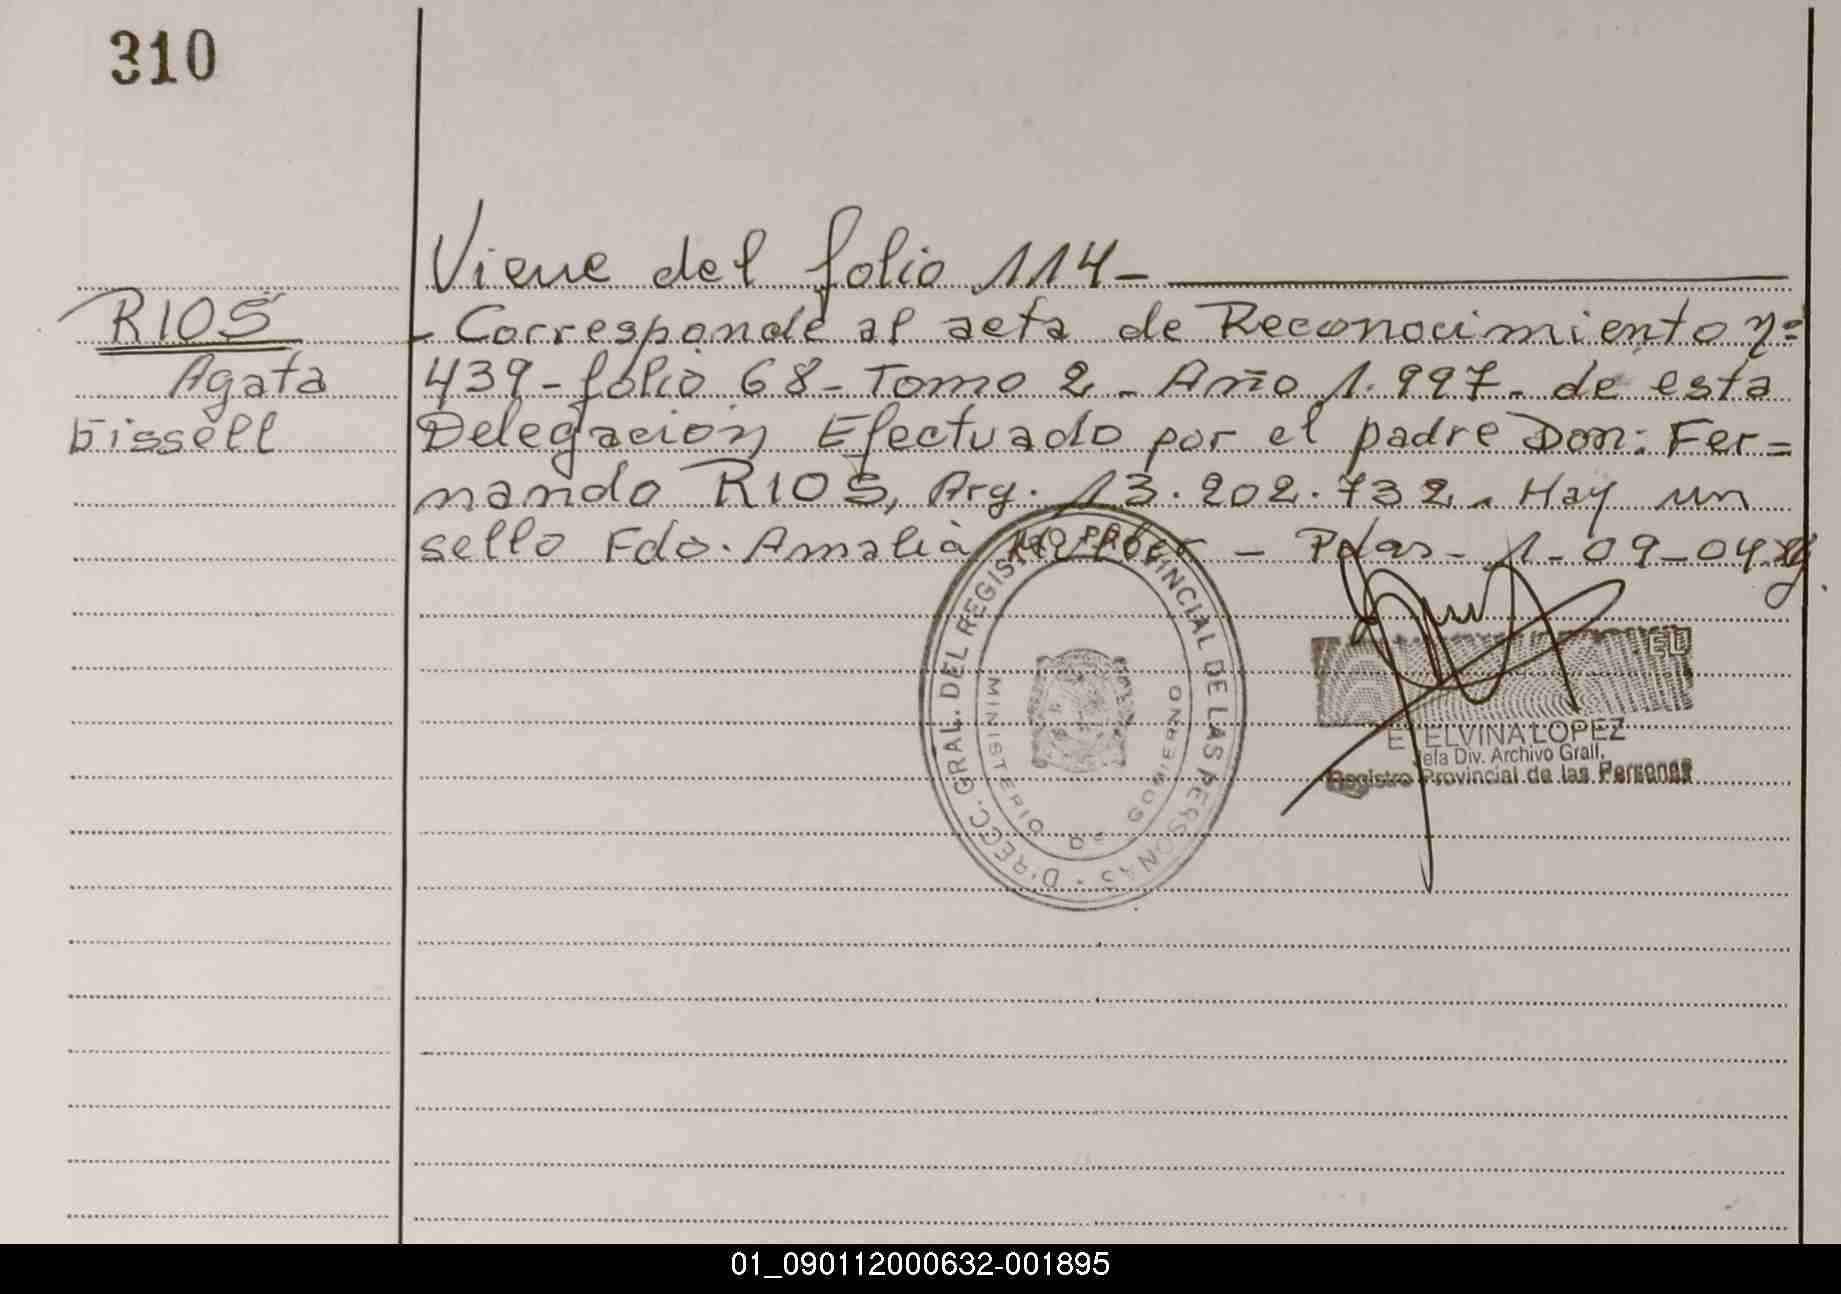 310
Viene del folio 114-
RIOS
- Corresponde al acta de Reconocimiento nº
Agata
439- folio 68- Tomo 2 - Año 1.997- de esta
Gissell
Delegación Efectuado por el padre Don: Fer=
nando RIOS, Arg. 13.202.732. Hay un
sello Fdo. Amalia - Pdas- 1-09-04.
DIRECC. GRAL. DEL REGISTRO PROVINCIAL DE LAS PERSONAS
MINISTERIO DE GOBIERNO
ELVINA LOPEZ
Jefa Div. Archivo Grall.
Registro Provincial de las Personas
01_090112000632-001895